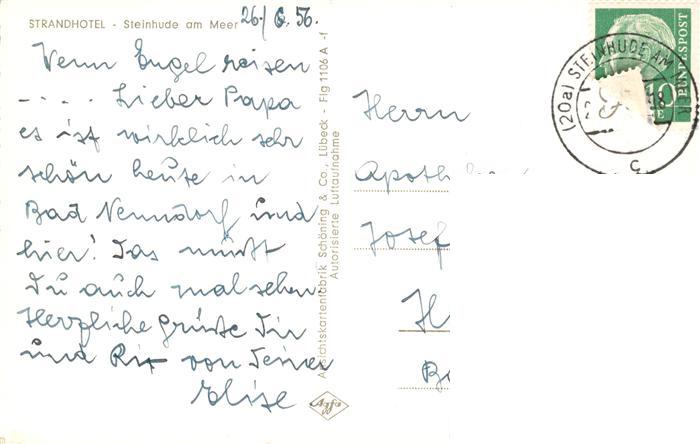 STRANDHOTEL - Steinhude am Meer 26./6.56.
Wenn Engel reisen
- - - . Lieber Papa
es ist wirklich sehr
schön heute in
Bad Nenndorf und
hier! Das müßt
Du auch mal sehen.
Herzliche Grüße Dir
und von Deiner
Elise
Ansichtskartenfabrik Schöning & Co., Lübeck - Flg 1106 A -f
Autorisierte Luftaufnahme
Agfa
Herrn
Apoth
Josef
H
DEUTSCHE BUNDESPOST
10
(20a) STEINHUDE AM
c